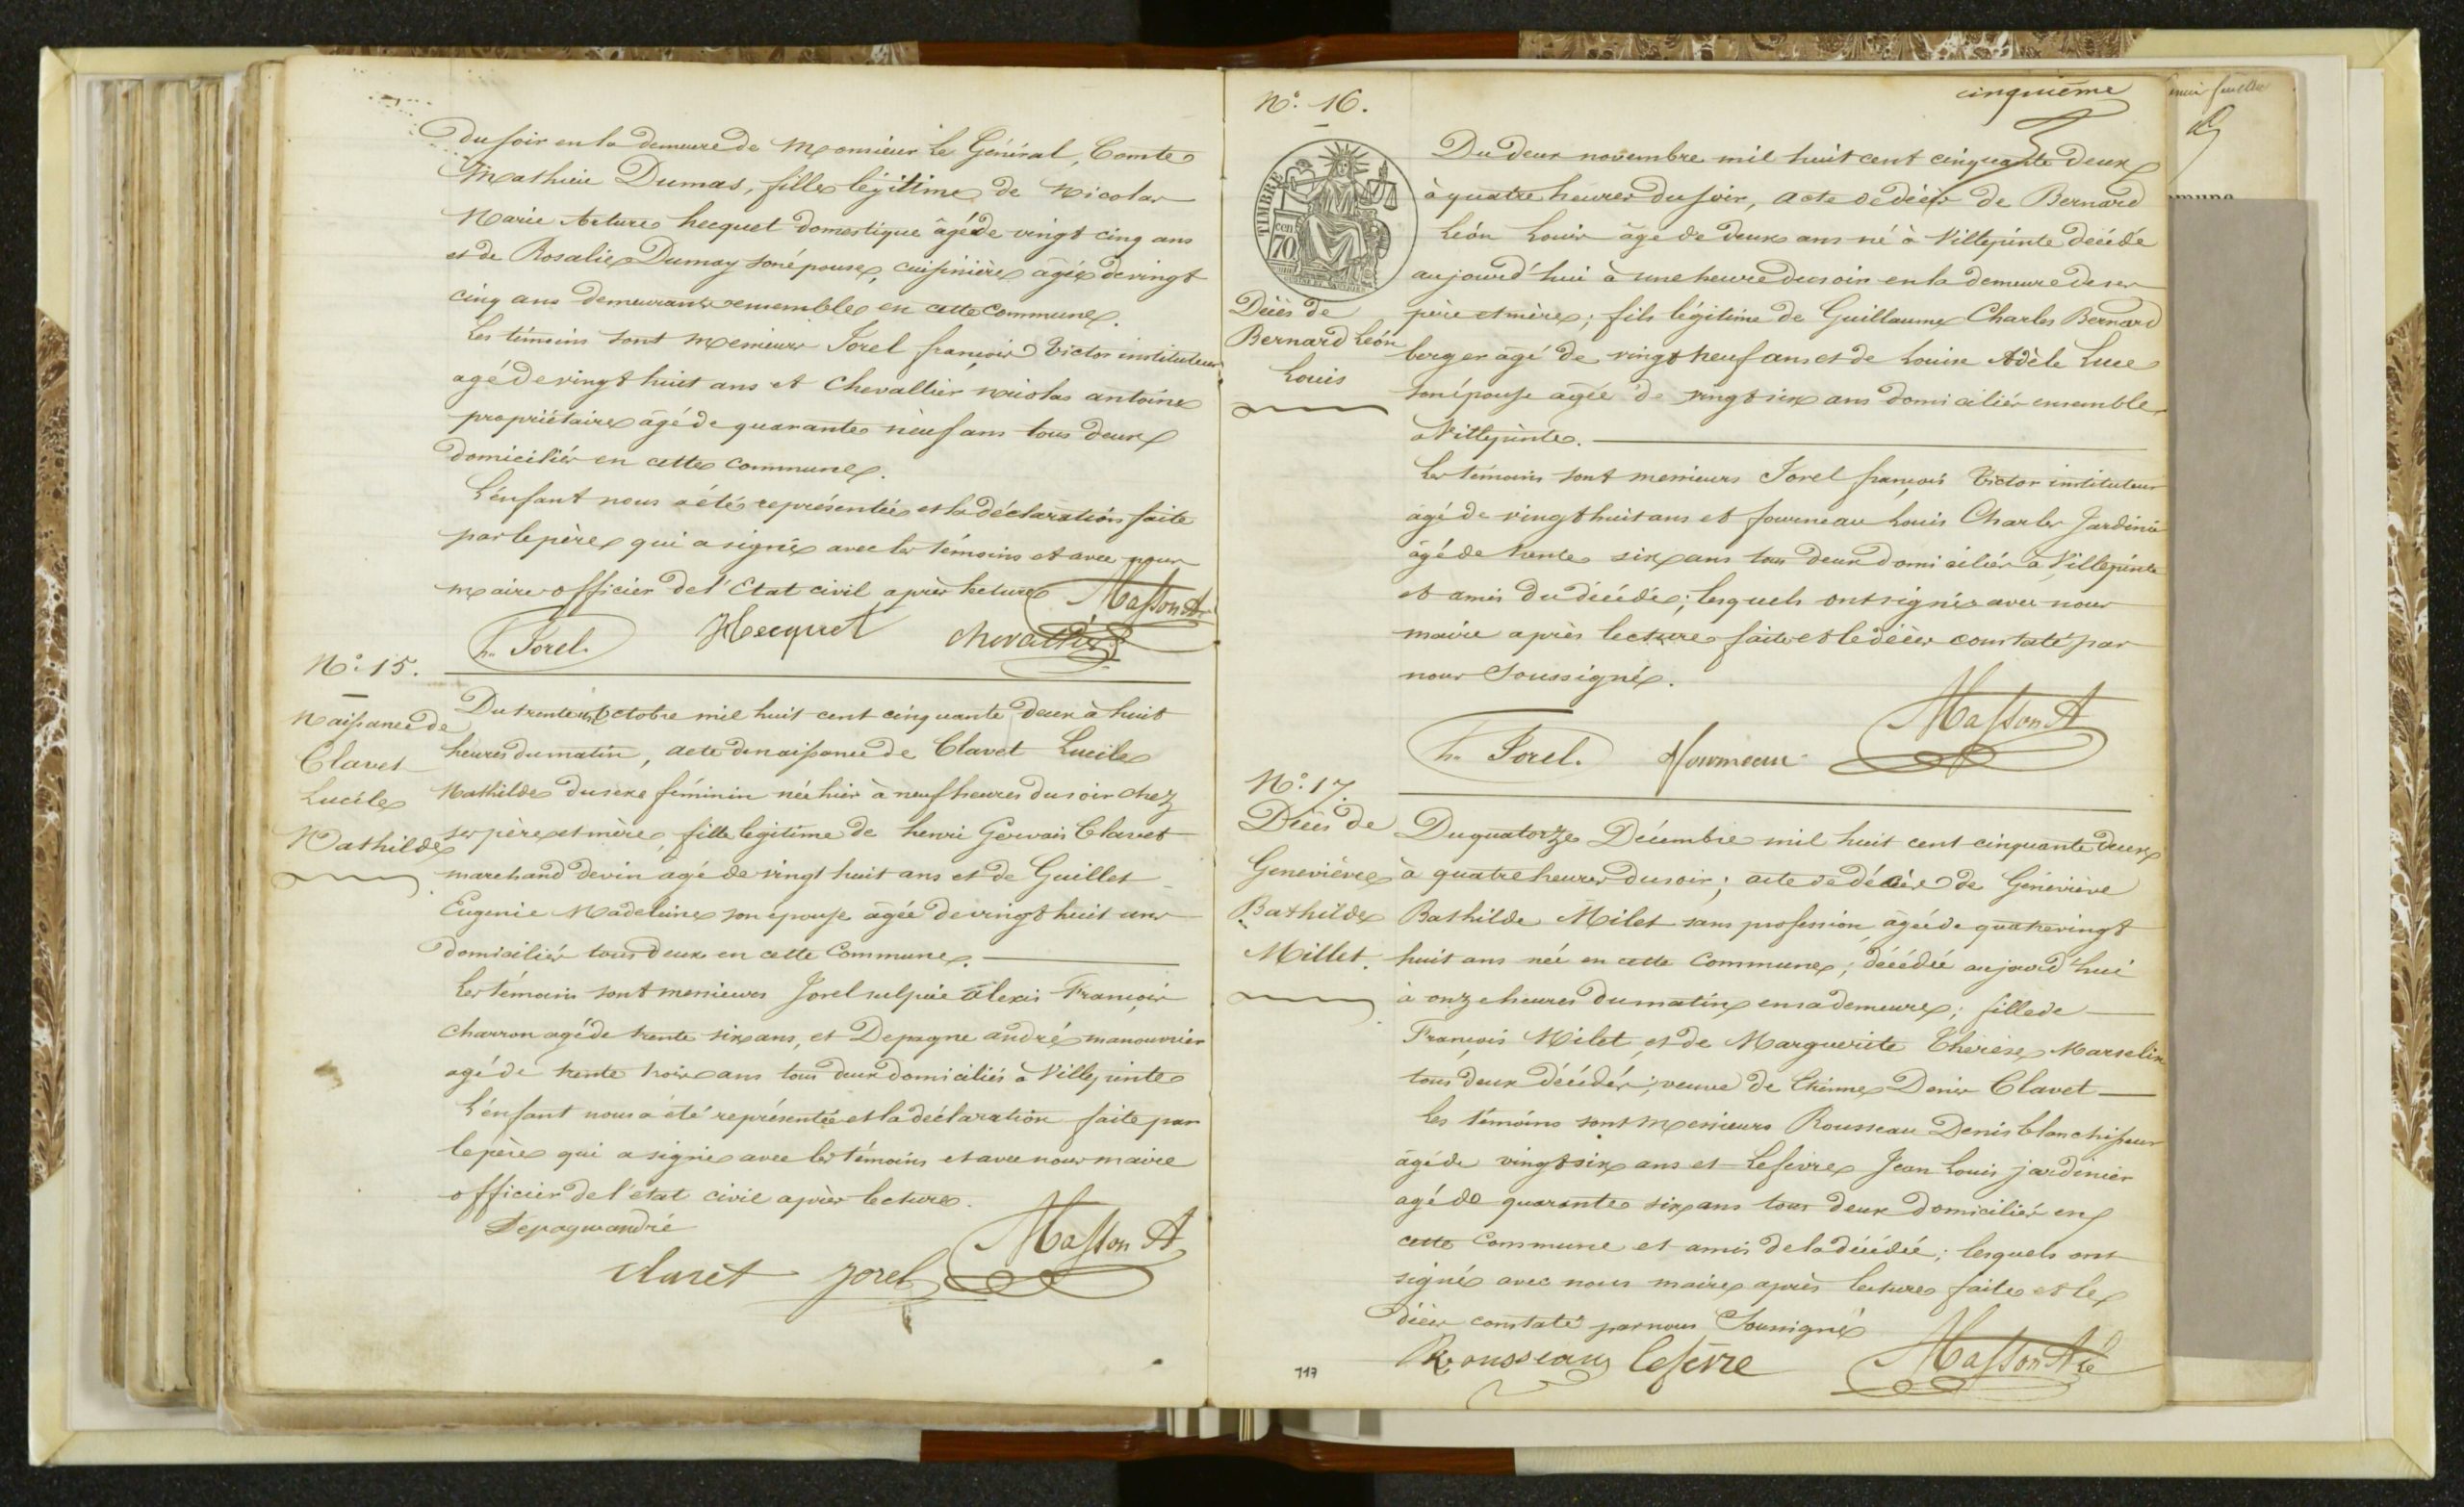 du soir en la demeure de Monsieur le Général, Comte
Mathieu Dumas, fille légitime de Nicolas
Marie Arture hecquet domestique âgé de vingt cinq ans
et de Rosalie Dumay son épouse, cuisinière âgée de vingt
cinq ans demeurants ensemble en cette commune.
Les témoins sont Messieurs Jorel françois Victor instituteur
agé de vingt huit ans et Chevallier nicolas antoine
propriétaire âgé de quarante neuf ans tous deux
domiciliés en cette commune.
L'enfant nous a été représentée et la déclaration faite
par le père qui a signé avec les témoins et avec nous
maire officier de l'Etat civil après lecture
Masson A
h. Jorel. Hecquet chevallier
N° 15.
Naissance de
Clavet
Lucile
Mathilde
Du trente octobre mil huit cent cinquante deux à huit
heures du matin, acte de naissance de Clavet Lucile
Mathilde du sexe féminin née hier à neuf heures du soir chez
ses père et mère, fille légitime de henri Gervais Clavet
marchand de vin agé de vingt huit ans et de Guillet
Eugenie Madeleine son épouse âgée de vingt huit ans
domiciliés tous deux en cette Commune.
Les témoins sont messieurs Jorel sulpice Alexis François
charron agé de trente six ans, et Depagne andré manouvrier
agé de trente trois ans tous deux domiciliés à Villepinte
L'enfant nous a été représentée et la déclaration faite par
le père qui a signé avec les témoins et avec nous maire
officier de l'état civil après lecture.
Depagne andré
Masson A
Clavet Jorel
cinquième
N° 16.
TIMBRE
70 cen
Décès de
Bernard Léon
Louis
Du deux novembre mil huit cent cinquante deux
à quatre heures du soir, acte de décès de Bernard
Léon Louis âgé de deux ans né à Villepinte décédé
aujourd'hui à une heure du soir en la demeure de ses
père et mère; fils légitime de Guillaume Charles Bernard
berger âgé de vingt neuf ans et de Louise Adèle Luce
son épouse agée de vingt six ans domiciliés ensemble
a Villepinte.
Les témoins sont messieurs Jorel françois Victor instituteur
âgé de vingt huit ans et fourneau Louis Charles Jardinier
âgé de trente six ans tous deux domiciliés à Villepinte
et amis du décédé; lesquels ont signé avec nous
maire après lecture faite et le décès constaté par
nous Soussigné.
Masson A
h. Jorel. fourneau
N° 17.
Décès de
Geneviève
Bathilde
Millet.
Du quatorze Décembre mil huit cent cinquante deux
à quatre heures du soir; acte de décès de Géneviève
Bathilde Milet sans profession, âgée de quatre vingt
huit ans née en cette Commune; décédée aujourd'hui
à onze heures du matin en sa demeure; fille de
François Milet, et de Marguerite Thérèse Marseline
tous deux décédés; veuve de Etienne Denis Clavet
Les témoins sont Messieurs Rousseau Denis blanchisseur
âgé de vingt six ans et Lefèvre Jean Louis jardinier
agé de quarante six ans tous deux domiciliés en
cette Commune et amis de la décédée; lesquels ont
signé avec nous maire après lecture faite et le
décès constaté par nous Soussigné
Rousseau lefevre Masson A
117